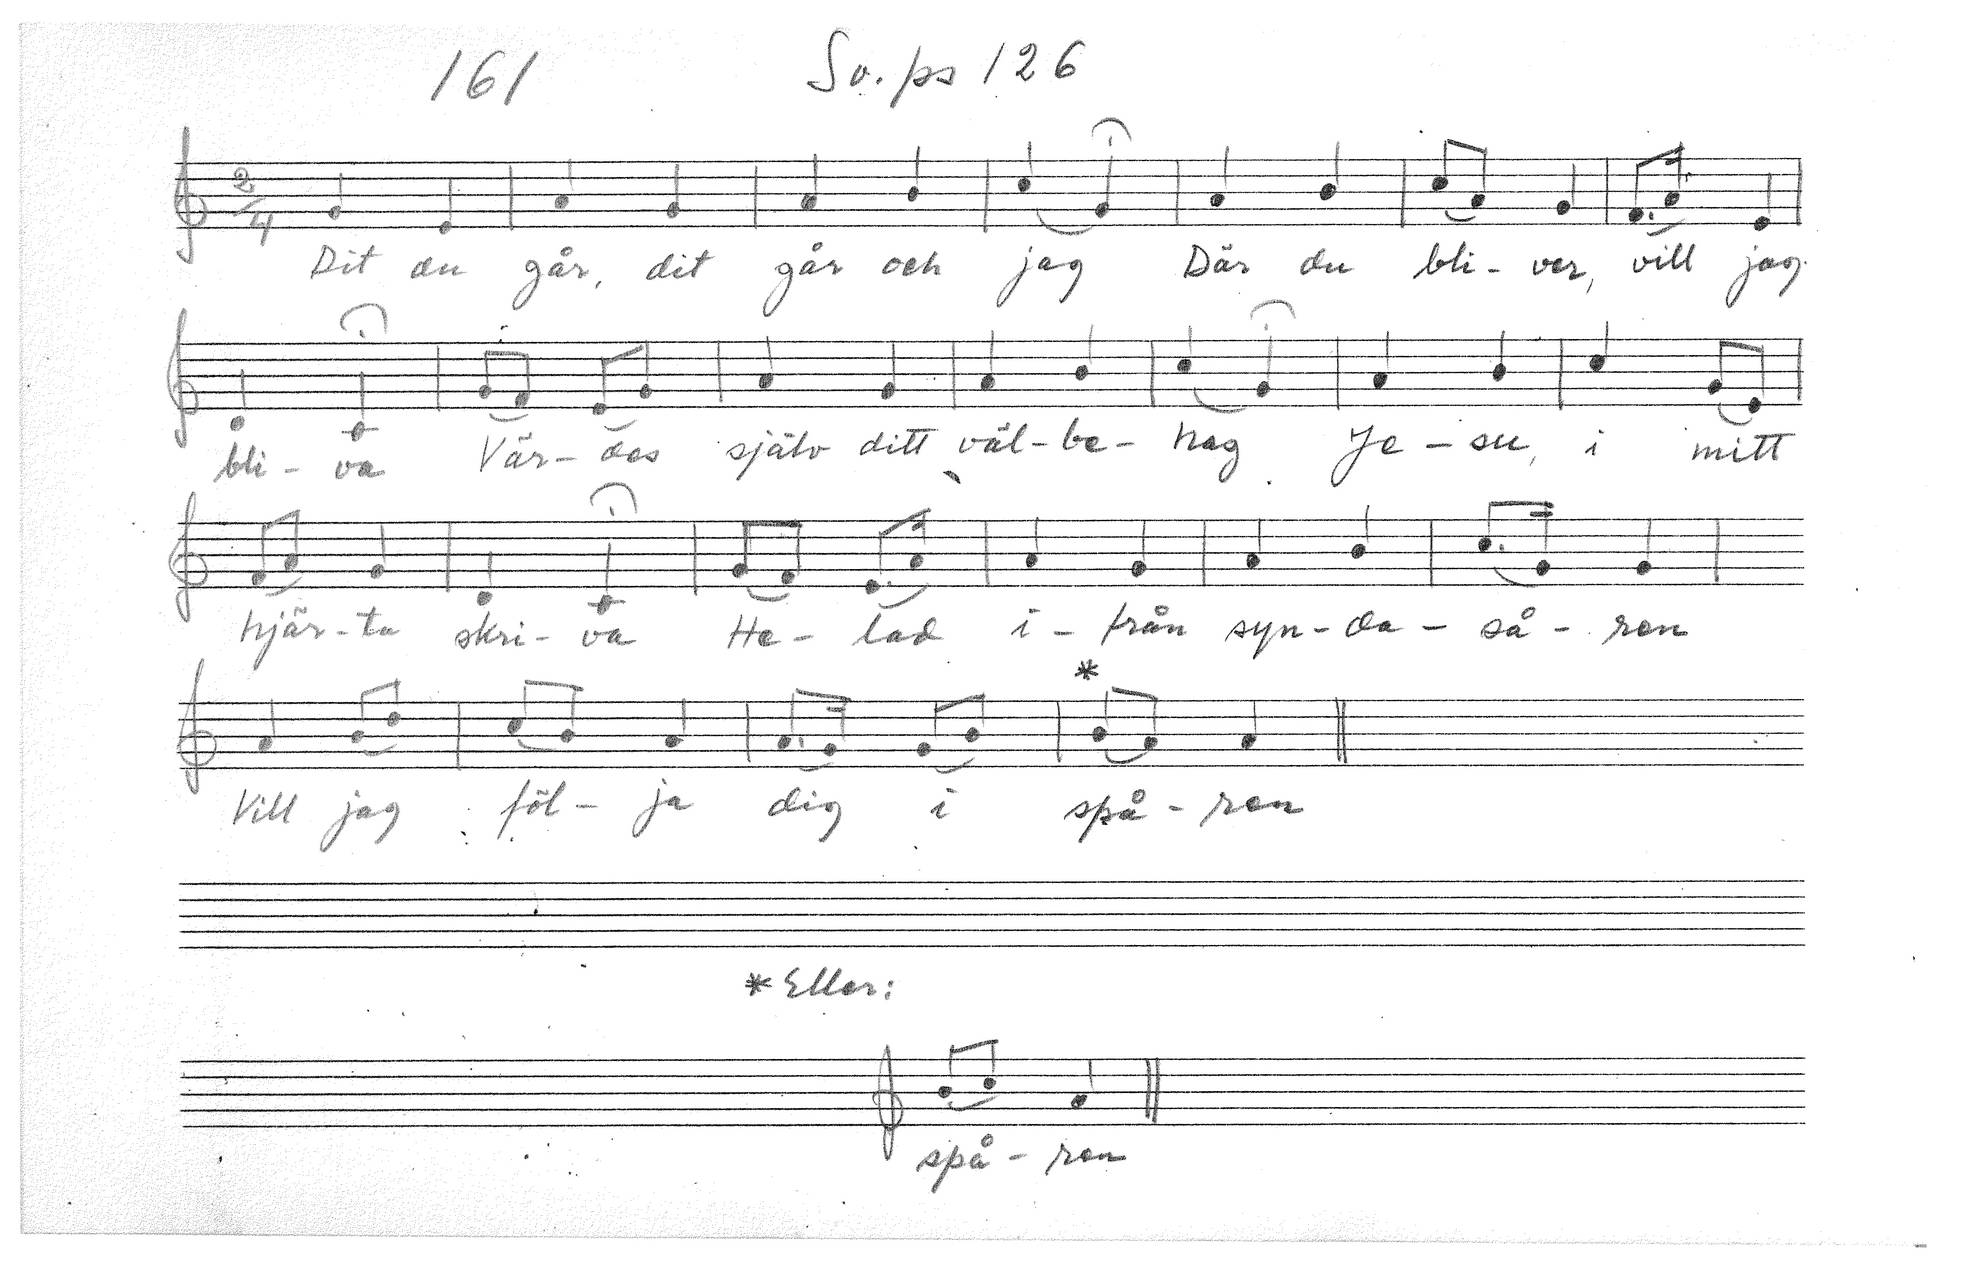 161 Sv. ps 126
2/4
Dit du går, dit går och jag Där du bli- ver, vill jag
bli- va Vär- des själv ditt väl- be- hag Je- su, i mitt
hjär- ta skri- va He- lad i- från syn- da- så- ren
*
Vill jag föl- ja dig i spå- ren
* Eller:
spå- ren